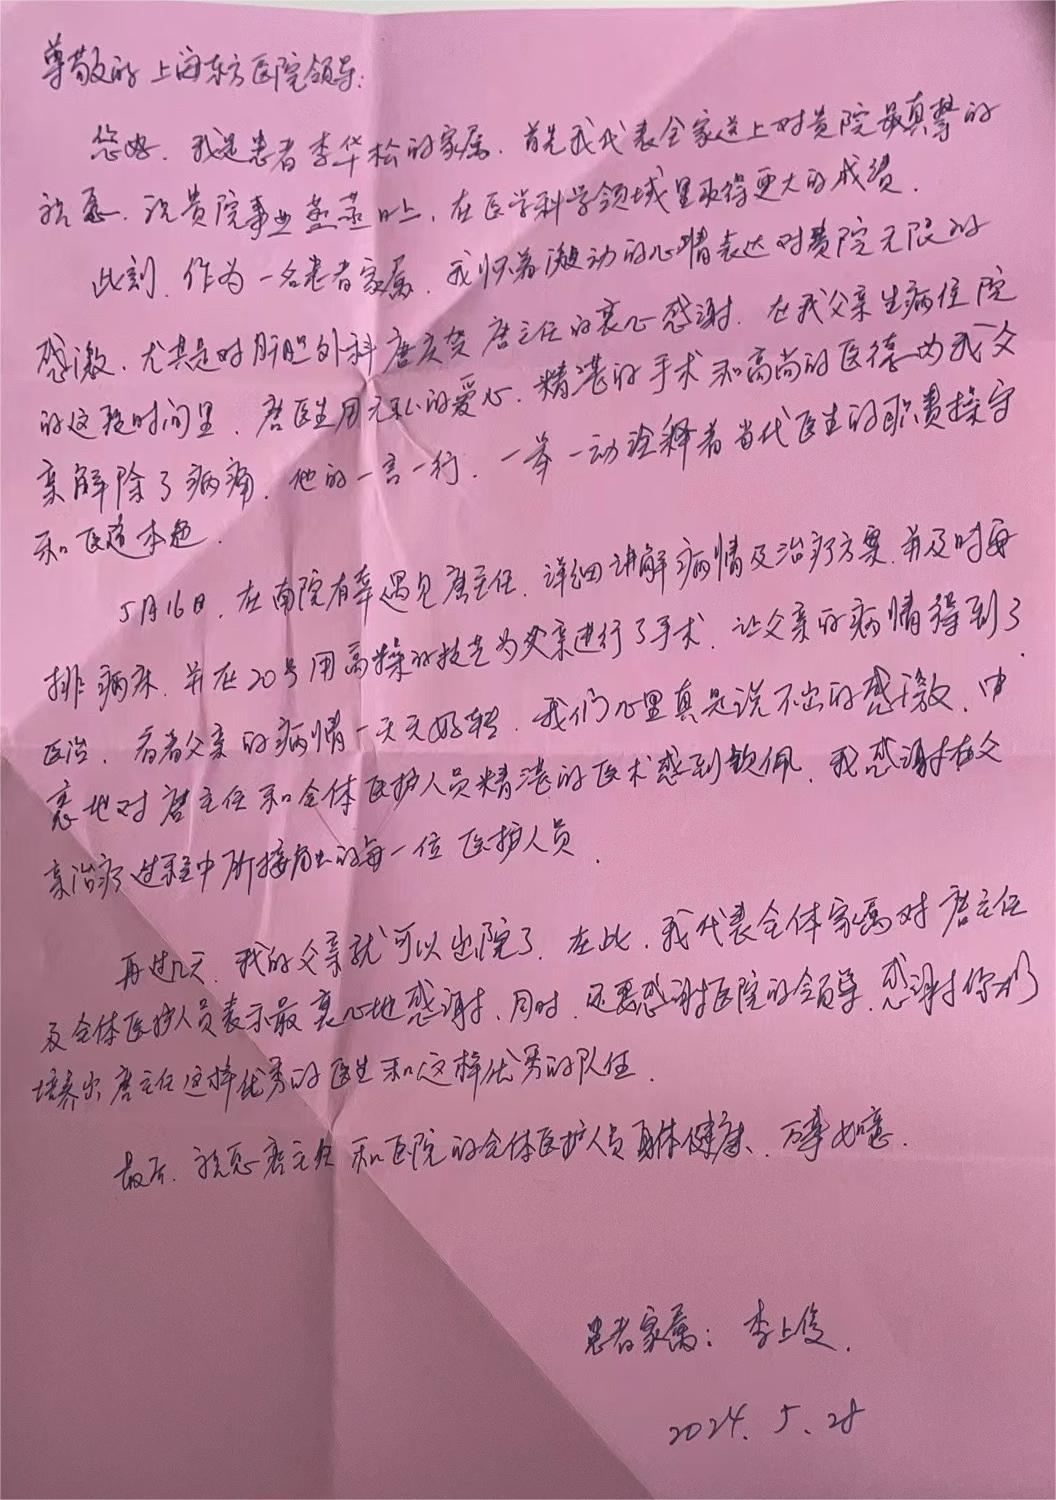 尊敬的上海东方医院领导:
您好.我是患者李华松的家属.首先我代表全家送上对贵院最真挚的
祝愿.祝贵院事业蒸蒸日上,在医学科学领域里取得更大的成绩.
此刻.作为一名患者家属,我怀着激动的心情表达对贵院无限的
感激.尤其是对肝胆外科唐庆贺唐主任的衷心感谢.在我父亲生病住院
的这段时间里.唐医生用无私的爱心.精湛的手术和高尚的医德为我父
亲解除了病痛.他的一言一行.一举一动诠释着当代医生的职责操守
和医道本色.
5月16日.在南院有幸遇见唐主任.详细讲解病情及治疗方案.并及时安
排病床.并在20号用高操的技艺为父亲进行了手术.让父亲的病情得到了
医治.看着父亲的病情一天天好转.我们心里真是说不出的感激.由
衷地对唐主任和全体医护人员精湛的医术感到钦佩.我感谢在父
亲治疗过程中所接触的每一位医护人员.
再过几天.我的父亲就可以出院了.在此.我代表全体家属对唐主任
及全体医护人员表示最衷心地感谢.同时.还要感谢医院的领导.感谢你们
培养出唐主任这样优秀的医生和这样优秀的队伍.
最后.祝愿唐主任和医院的全体医护人员身体健康、万事如意.
患者家属:李上俊.
2024.5.28